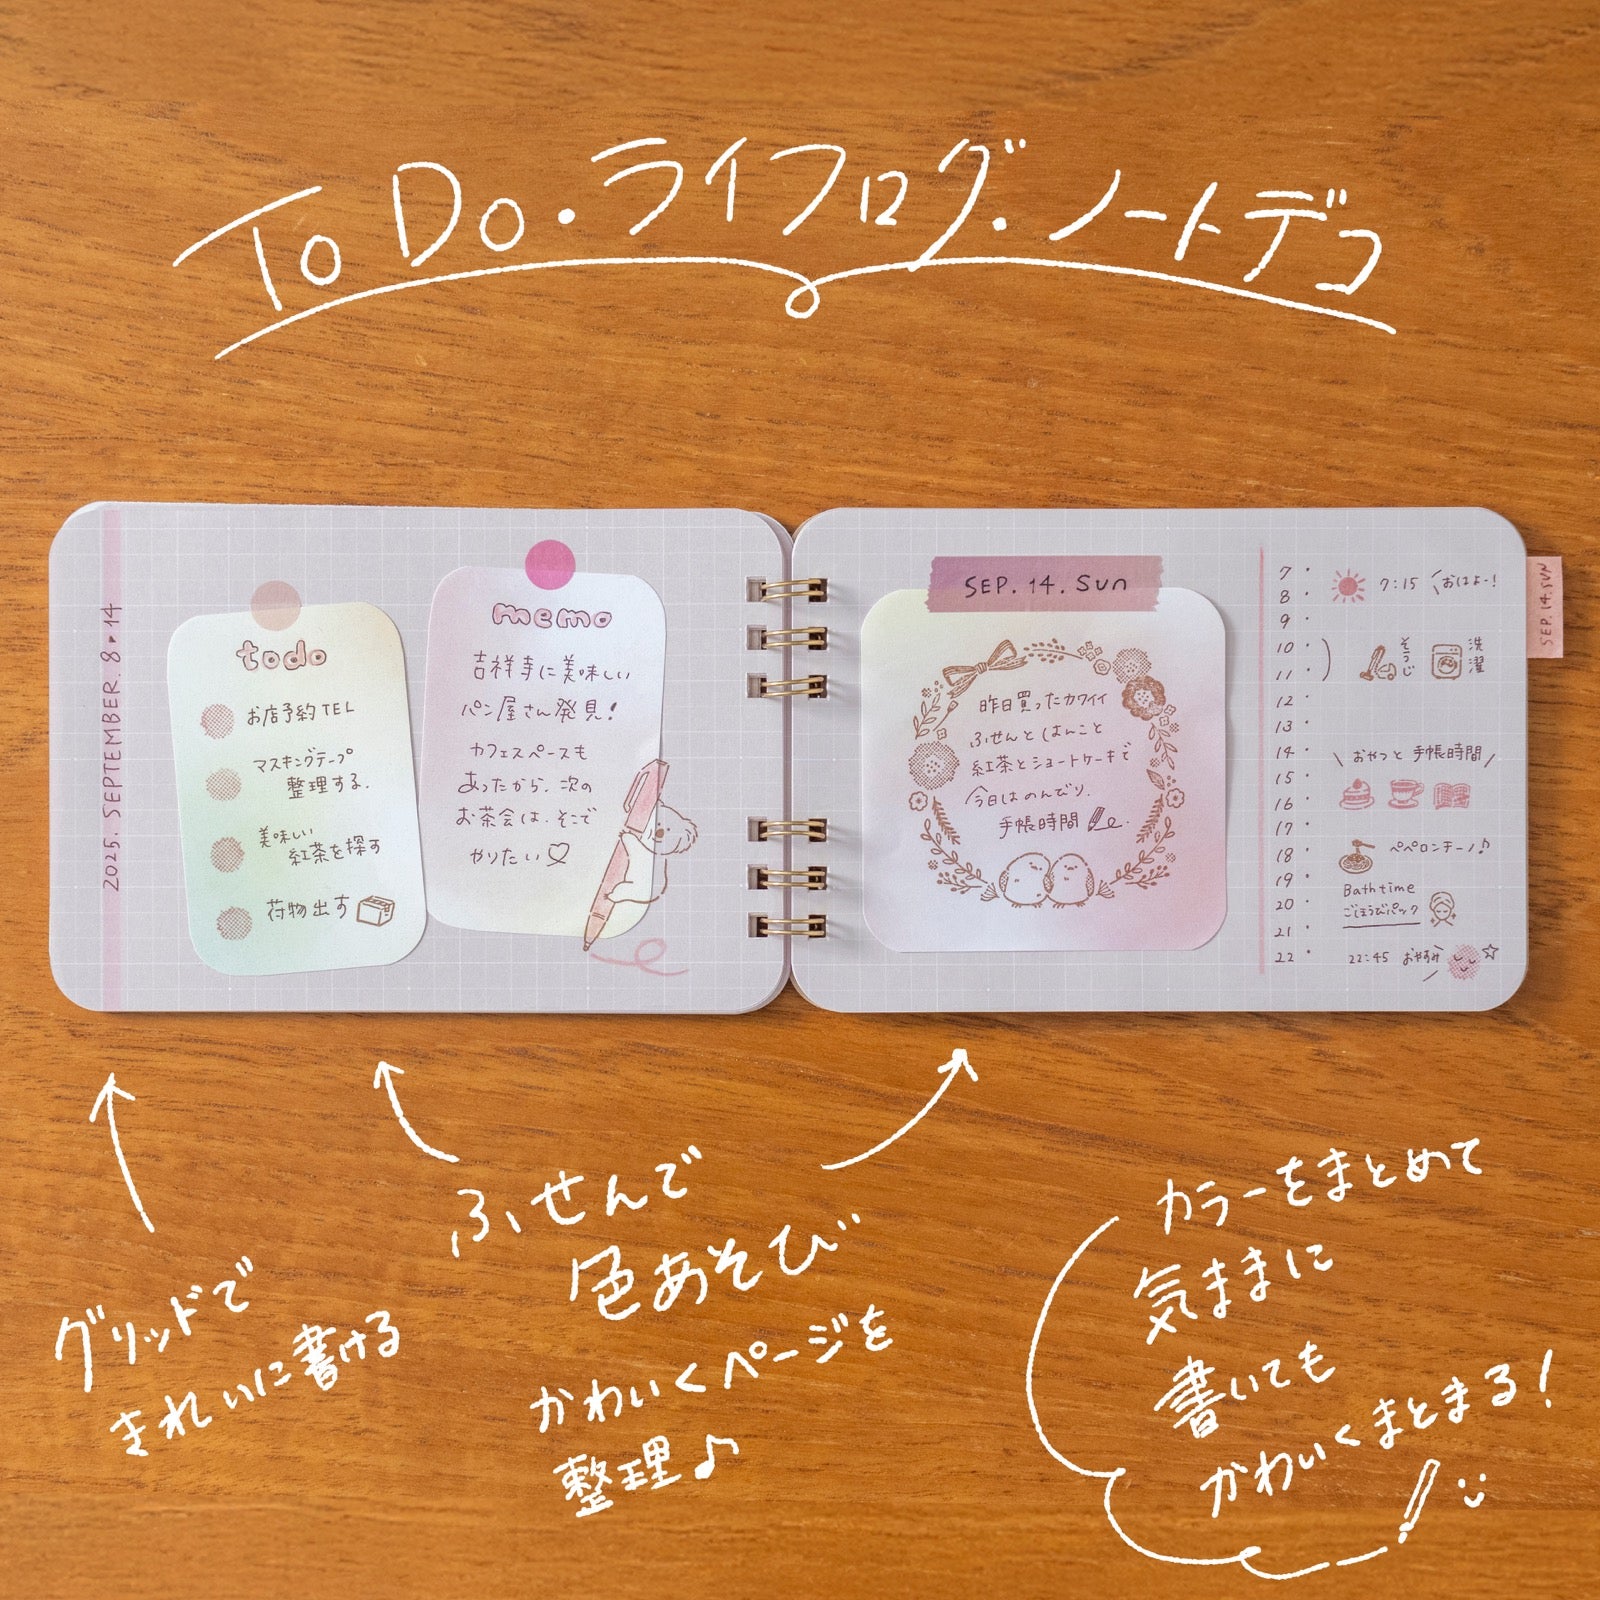 ToDo・ライフログ・ノートデコ
2025. SEPTEMBER. 8♥14
todo
お店予約TEL
マスキングテープ
整理する.
美味しい
紅茶を探す
荷物出す
memo
吉祥寺に美味しい
パン屋さん発見!
カフェスペースも
あったから、次の
お茶会は、そこで
やりたい♡
SEP. 14. Sun
昨日買ったカワイイ
ふせんとはんこと
紅茶とショートケーキで
今日はのんびり、
手帳時間
7・
8・
9・
10・
11・
12・
13・
14・
15・
16・
17・
18・
19・
20・
21・
22・
7:15 \おはよー!
そうじ
洗濯
\おやつと手帳時間/
ペペロンチーノ♪
Bath time
ごほうびパック
22:45 おやすみ
SEP.14.SUN
グリッドで
きれいに書ける
ふせんで
色あそび
かわいくページを
整理♪
カラーをまとめて
気ままに
書いても
かわいくまとまる!